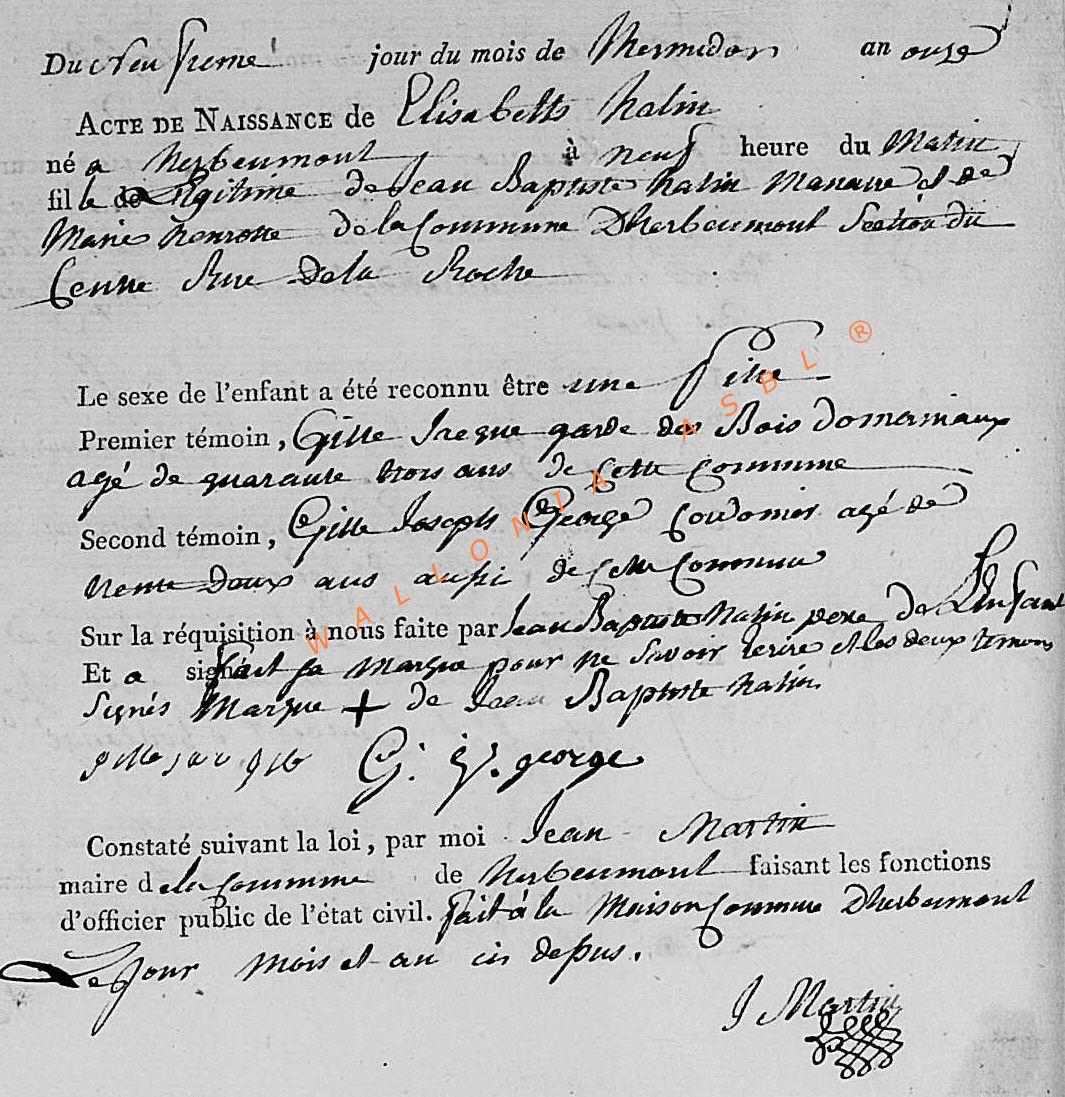 Du neufieme jour du mois de Thermidor an onze
ACTE DE NAISSANCE de Elisabette halin
né a herbeumont à neuf heure du Matin
fille de Legitime de Jean Baptiste halin Manauvre et de
Marie henrotte de la Commune Dherbeumont Section du
Centre Rue De la Roche
Le sexe de l'enfant a été reconnu être une fille
Premier témoin, Gille garde des Bois Domaniaux
agé de quarante trois ans de Cette Commune
Second témoin, Gille Joseph George Cordonier agé de
trente Deux ans aussi de Cette Commune
Sur la réquisition à nous faite par Jean Baptiste halin pere de L'Enfant
Et a signé fait sa marque pour ne savoir ecrire et les deux temoins
Signés Marque + de Jean Baptiste halin
gille G: J: george
Constaté suivant la loi, par moi Jean Martin
maire de la Commune de herbeumont faisant les fonctions
d'officier public de l'état civil. fait à la Maison Commune Dherbeumont
Le Jour mois et an cis depus.
J Martin
WALLONIA ASBL ®